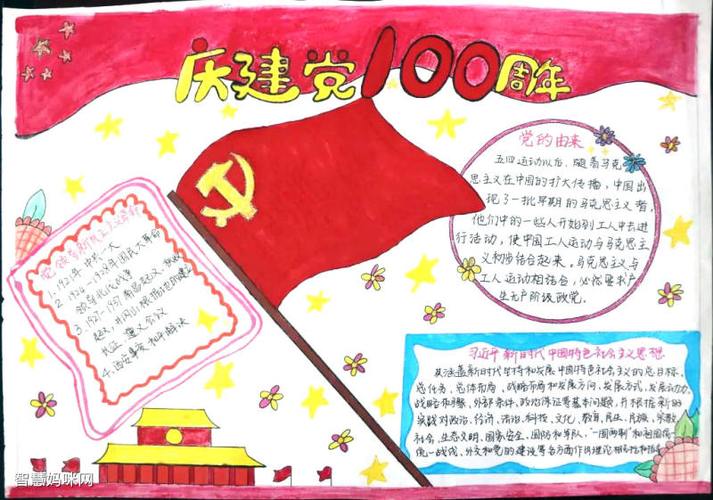 庆建党100周年
党的由来
五四运动以后，随着马克
思主义在中国的扩大传播，中国出
现了一批早期的马克思主义者，
他们中的一些人开始到工人中去进
行活动，使中国工人运动与马克思主
义初步结合起来。马克思主义与
工人运动相结合，必然要求产
生无产阶级政党。
党领导新民主主义革命
1.1921年 中共一大
2.1924-1927年国民大革命
领导北伐战争
3.1927-1937 南昌起义、秋收
起义、井冈山根据地的建立
长征 遵义会议
4.西安事变 和平解决
习近平新时代中国特色社会主义思想
新时代坚持和发展中国特色社会主义的总目标、
总任务、总体布局、战略布局和发展方向、发展方式、发展动力、
战略步骤、外部条件、政治保证等基本问题，并根据新的
实践对政治、经济、法治、科技、文化、教育、民生、民族、宗教、
社会、生态文明、国家安全、国防和军队、“一国两制”和祖国统
一、统一战线、外交和党的建设等各方面作出理论
智慧妈咪网